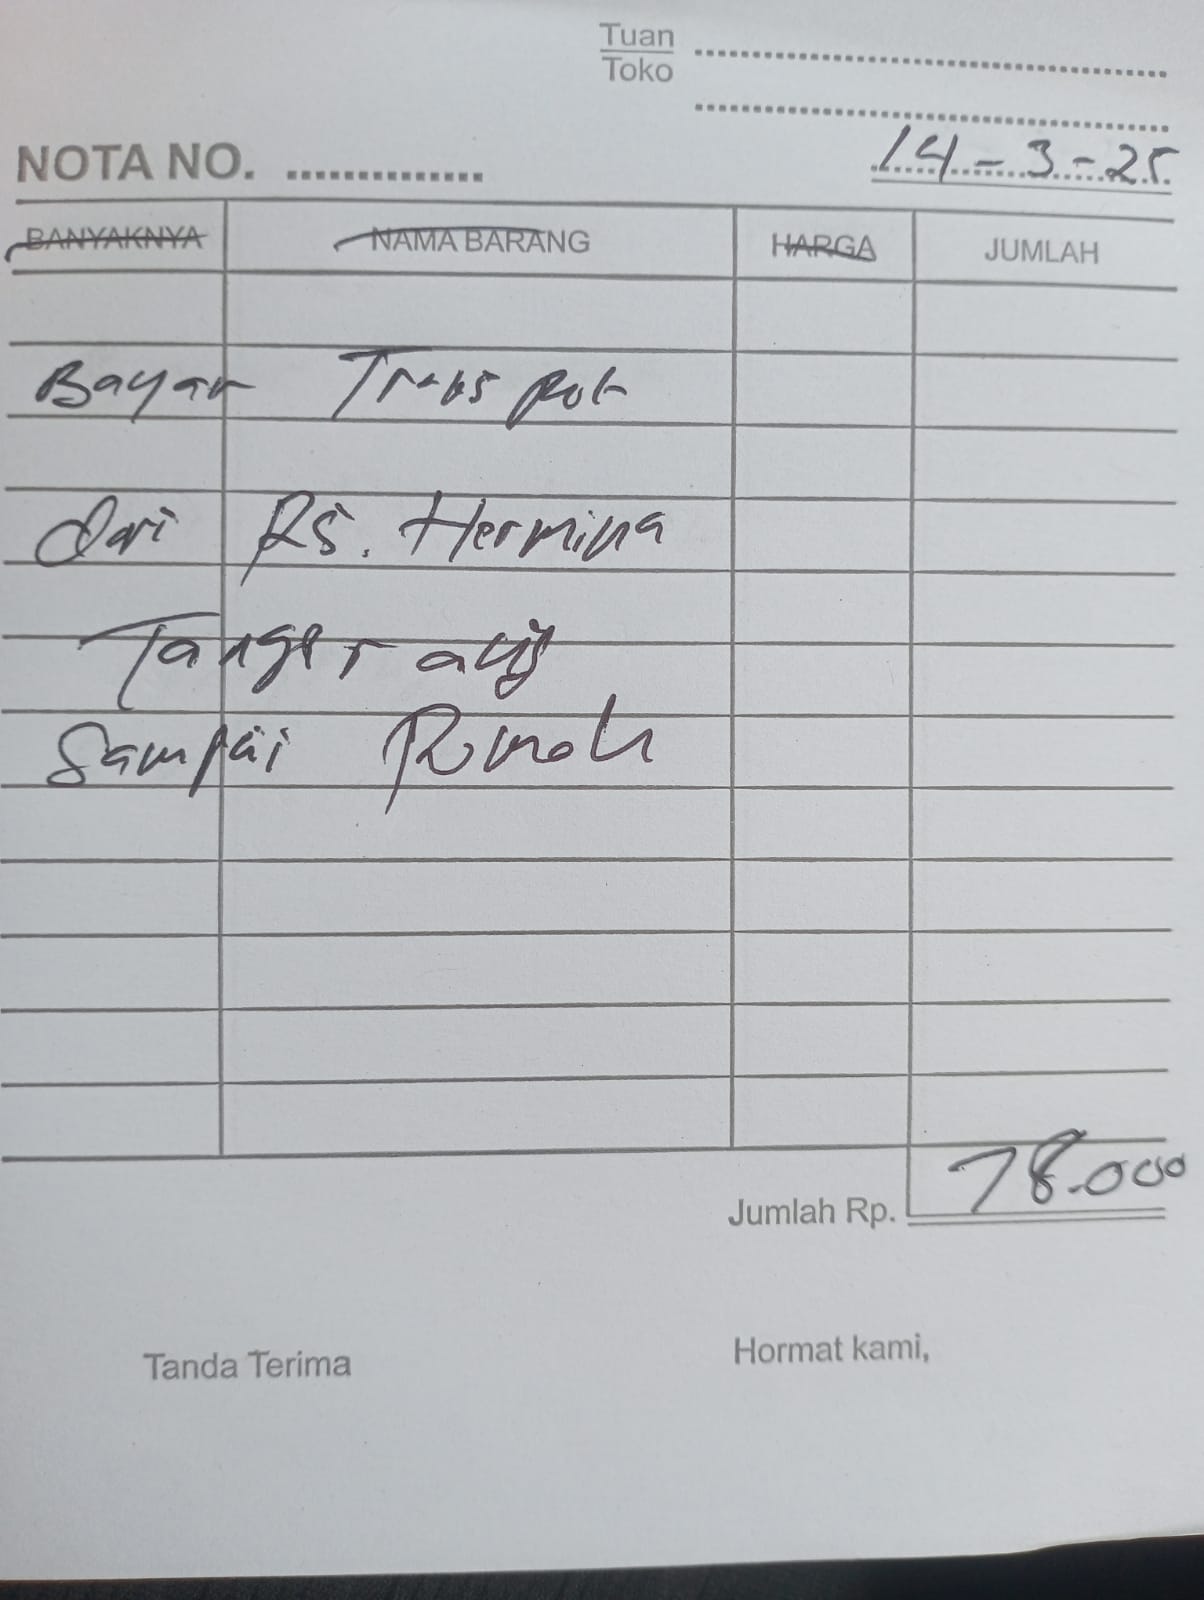 Tuan
Toko
NOTA NO.
14-3-25
BANYAKNYA NAMA BARANG HARGA JUMLAH
Bayar Transpot
dari RS. Hermina
Tangerang
Sampai Rumah
Jumlah Rp. 78.000
Tanda Terima Hormat kami,